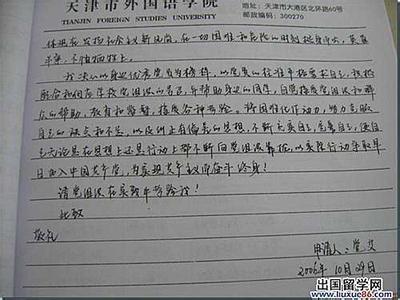 天津市外国语学院
TIANJIN FOREIGN STUDIES
地址:天津市大港区北环路60号
邮政编码:300270
体现在发扬社会主义新风尚，在一切困难和危险的时刻挺身而出，英勇
斗争，不怕牺牲上。
我决心以身边优秀党员为榜样，以党员的标准严格要求自己，积极
配合和服从学校党组织的 自觉接受党组织和
众的帮助、教育和监督，接受各种考验，将困难化作动力，努力克服
自己的缺点和不足，以及纠正有偏差的思想，不断充实自己，完善自己，使自
己无论是在思想上还是行动上都不断向党组织靠拢，以实际行动争取早
日加入中国共产党，为实现共产主义而奋斗终身！
请党组织在实践中考验我！
此致
敬礼
申请人：
2006年 10月 29日
出国留学网
www.liuxue86.com